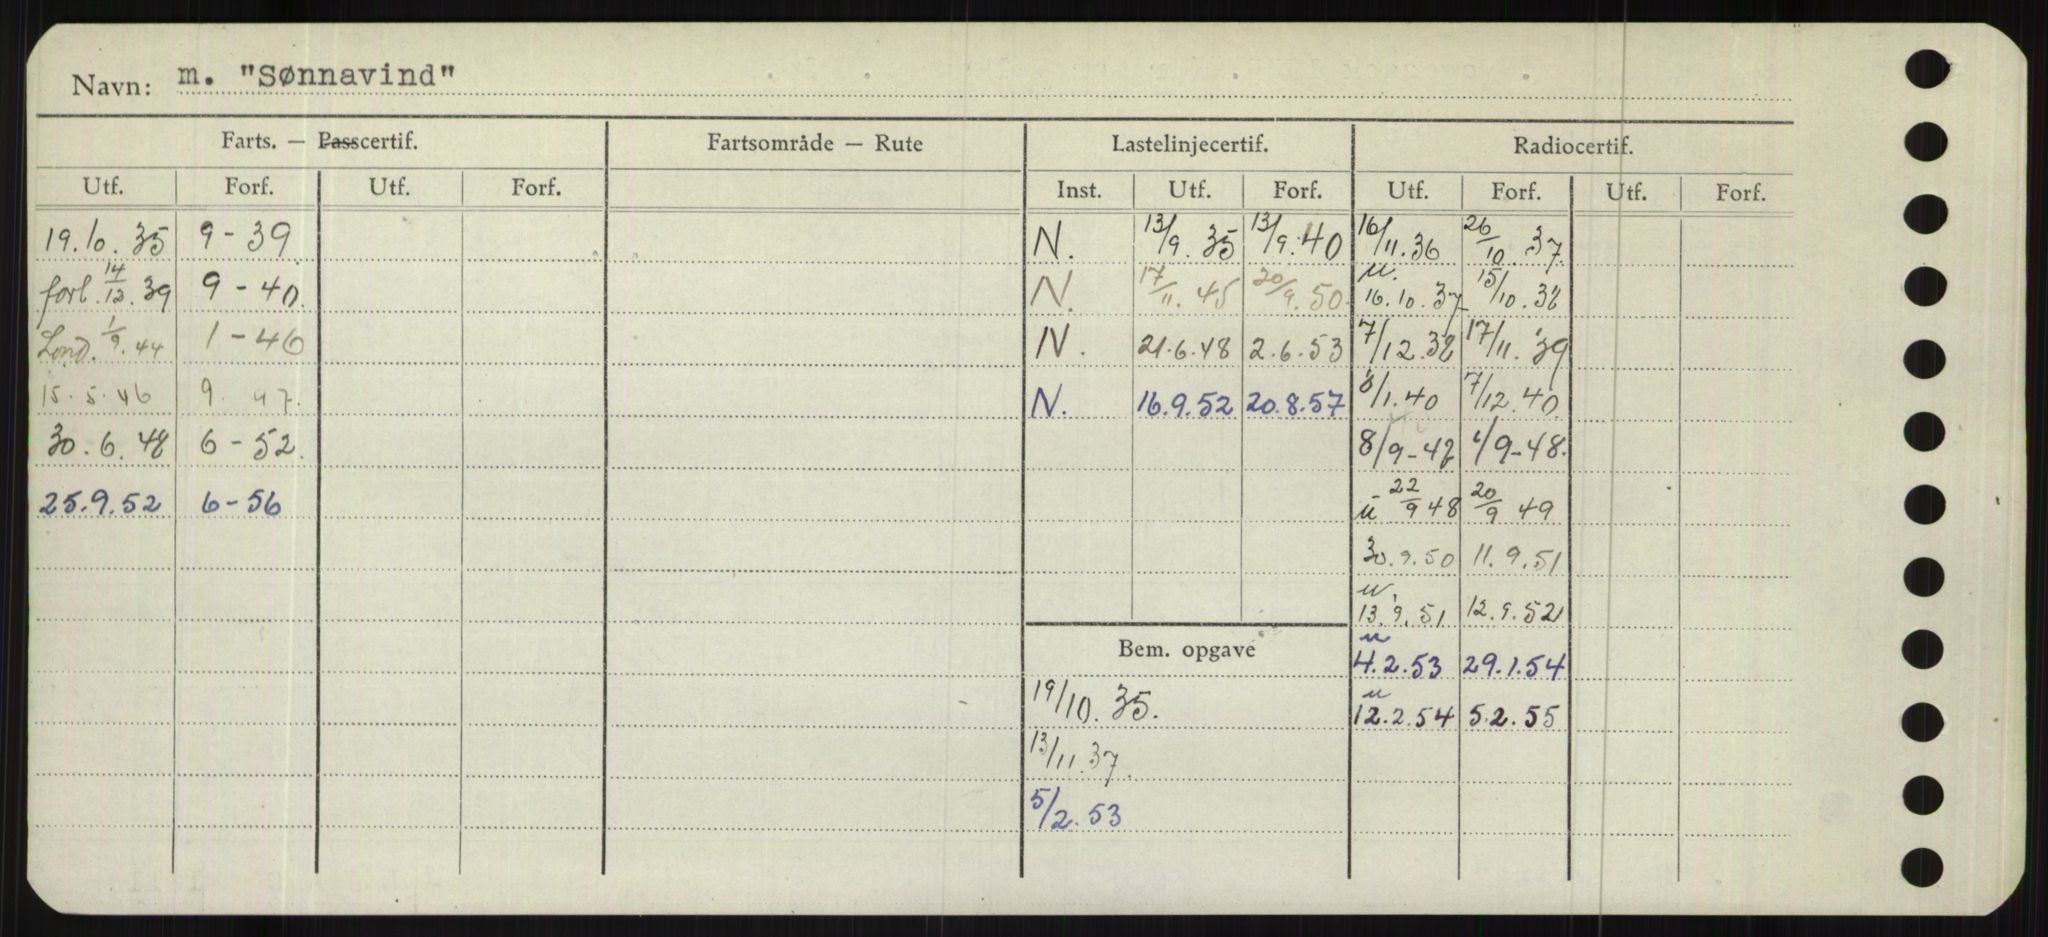 Navn: m. "Sønnavind"
Farts. — Passcertif. Fartsområde — Rute Lastelinjecertif. Radiocertif.
Utf. Forf. Utf. Forf. Inst. Utf. Forf. Utf. Forf. Utf. Forf.
19.10.35 9-39 N. 13/9.35 13/9.40 16/11.36 26/10.37
forl. 14/12.39 9-40. N. 17/11.45 20/9.50 u. 16.10.37 15/10.38
Lond. 1/9.44 1-46 N. 21.6.48 2.6.53 7/12.38 17/11.39
15.5.46 9 47. N. 16.9.52 20.8.57 8/1.40 7/12.40
30.6.48 6-52. 8/9-47 1/9-48.
25.9.52 6-56 u 22/9 48 20/9 49
30.9.50 11.9.51
u. 13.9.51 12.9.52
Bem. opgave u 4.2.53 29.1.54
19/10.35. u 12.2.54 5.2.55
13/11.37.
5/2.53